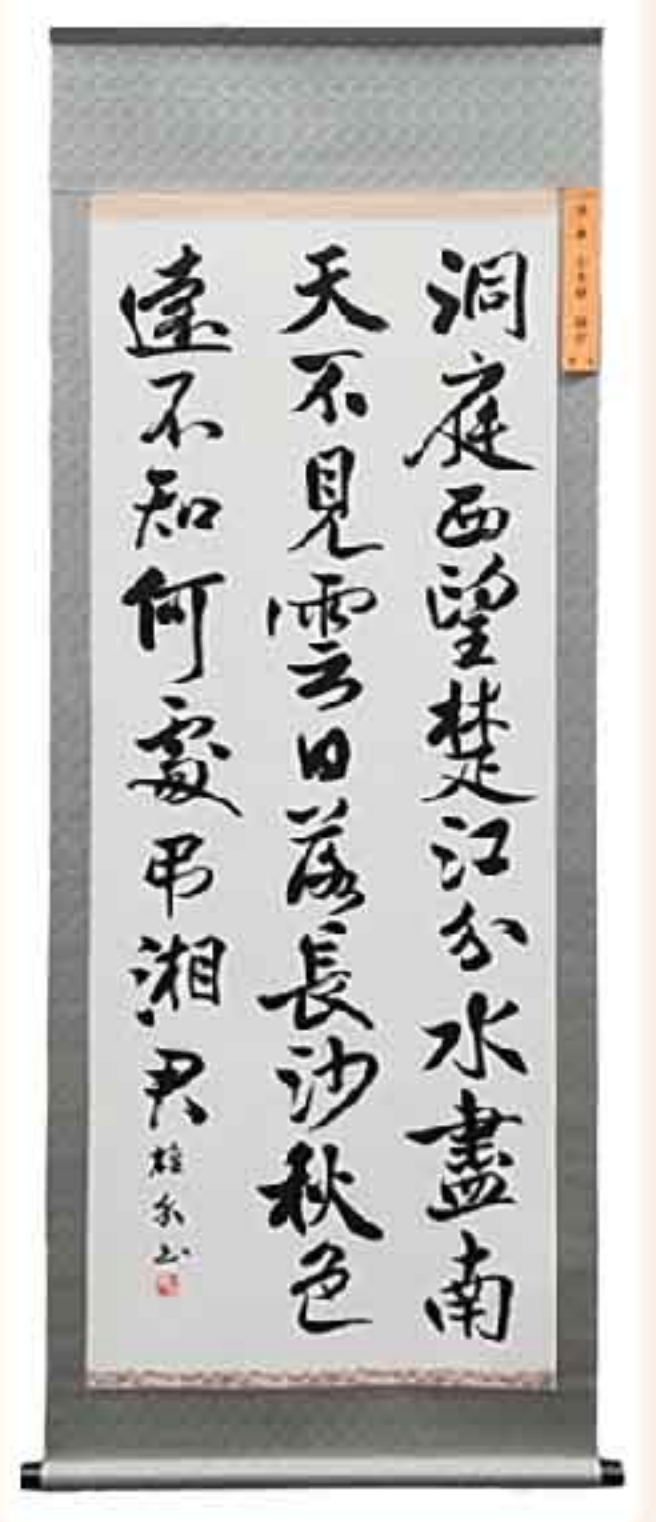 洞庭西望楚江分水盡南
天不見雲日落長沙秋色
遠不知何處弔湘君